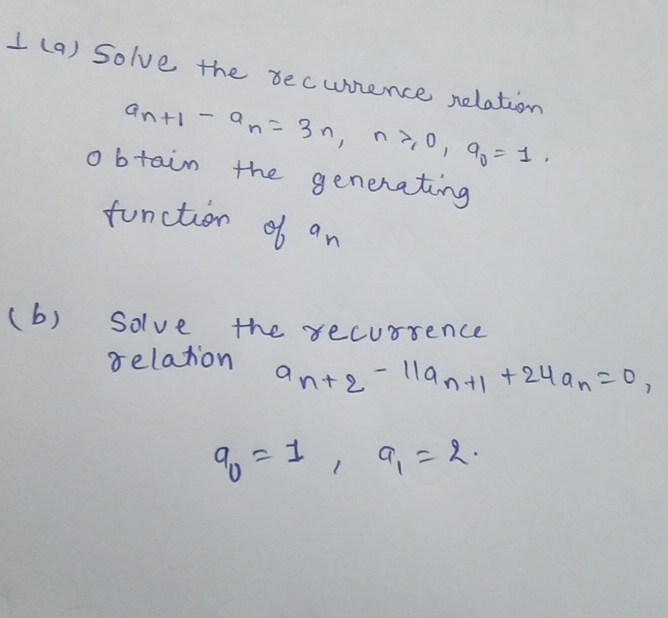 1 (a) Solve the recurrence relation
aₙ₊₁ - aₙ = 3n, n ≥ 0, a₀ = 1.
obtain the generating
function of aₙ
(b) Solve the recurrence
relation aₙ₊₂ - 11aₙ₊₁ + 24aₙ = 0,
a₀ = 1, a₁ = 2.